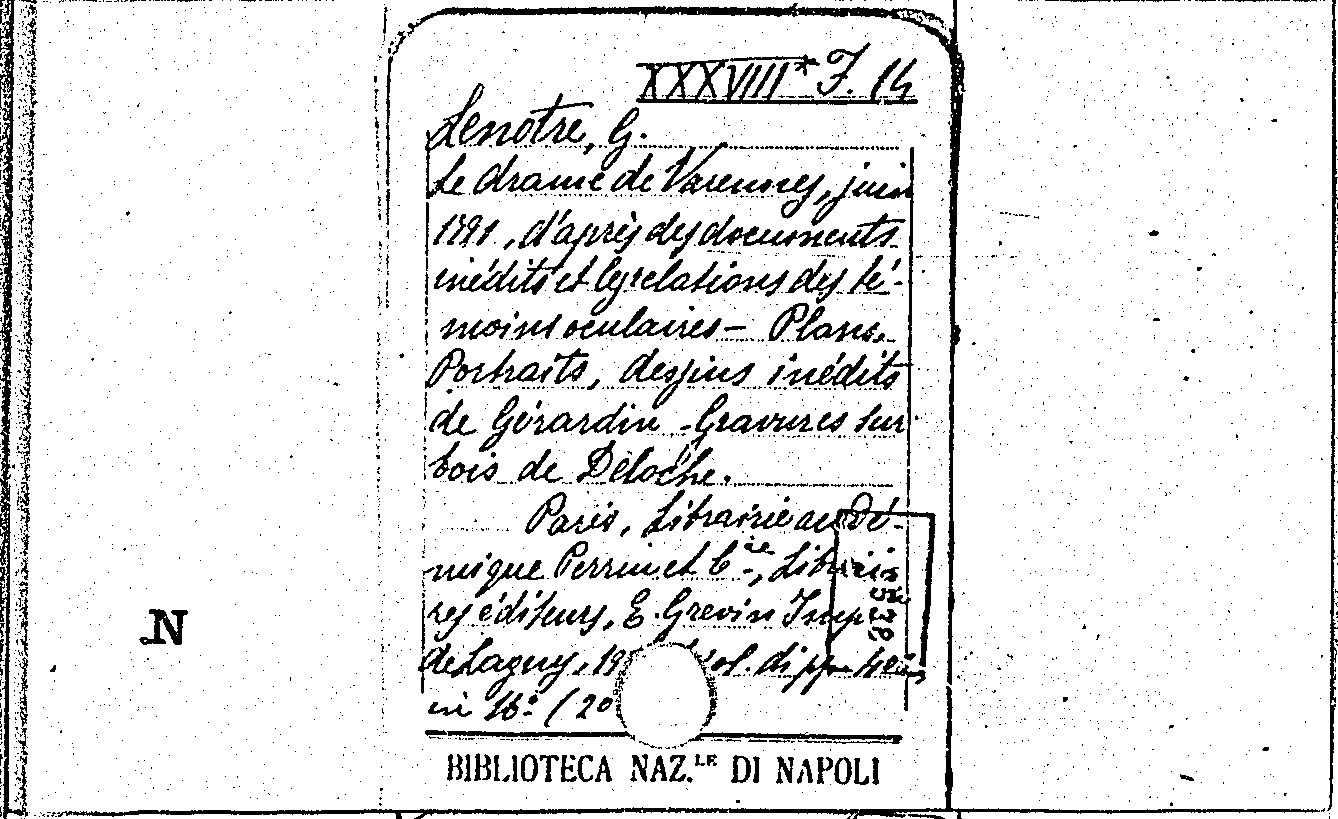 XXXVIII* F. 14
Lenotre, G.
Le drame de Varennes, juin
1791, d'après des documents
inédits et les relations des té-
moins oculaires - Plans,
Portraits, dessins inédits
de Gérardin - Gravures sur
bois de Deloche.
Paris, Librairie acadé-
mique Perrin et Cie, Librai-
res éditeurs, E. Grevin Imp.
de Lagny, 19 vol. di pp.
in 16° (20
N
BIBLIOTECA NAZ.LE DI NAPOLI